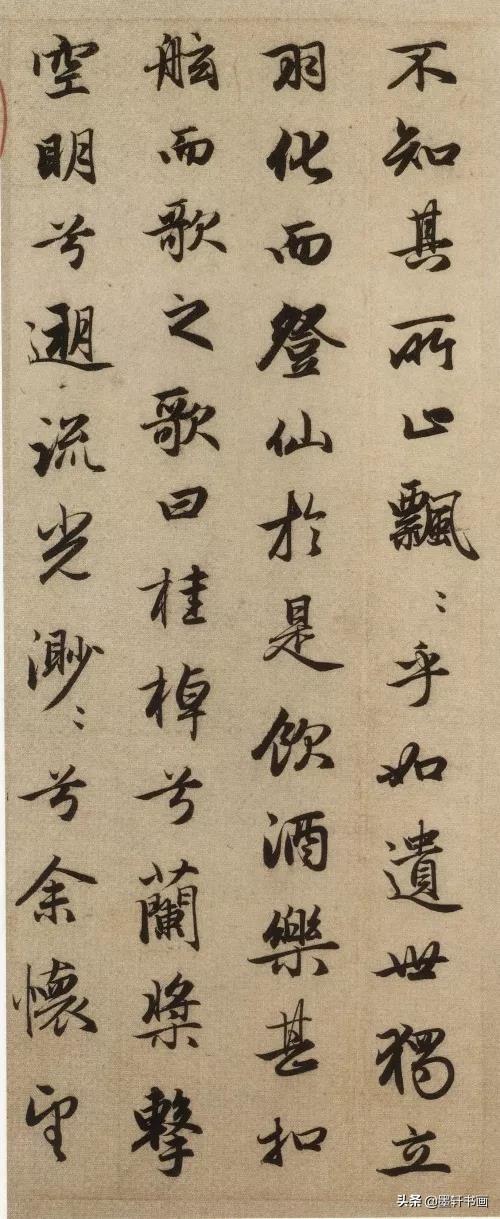 不知其所止飄〻乎如遺世獨立
羽化而登仙於是飲酒樂甚扣
舷而歌之歌曰桂棹兮蘭槳擊
空明兮遡流光渺〻兮余懷望
头条 @墨轩书画